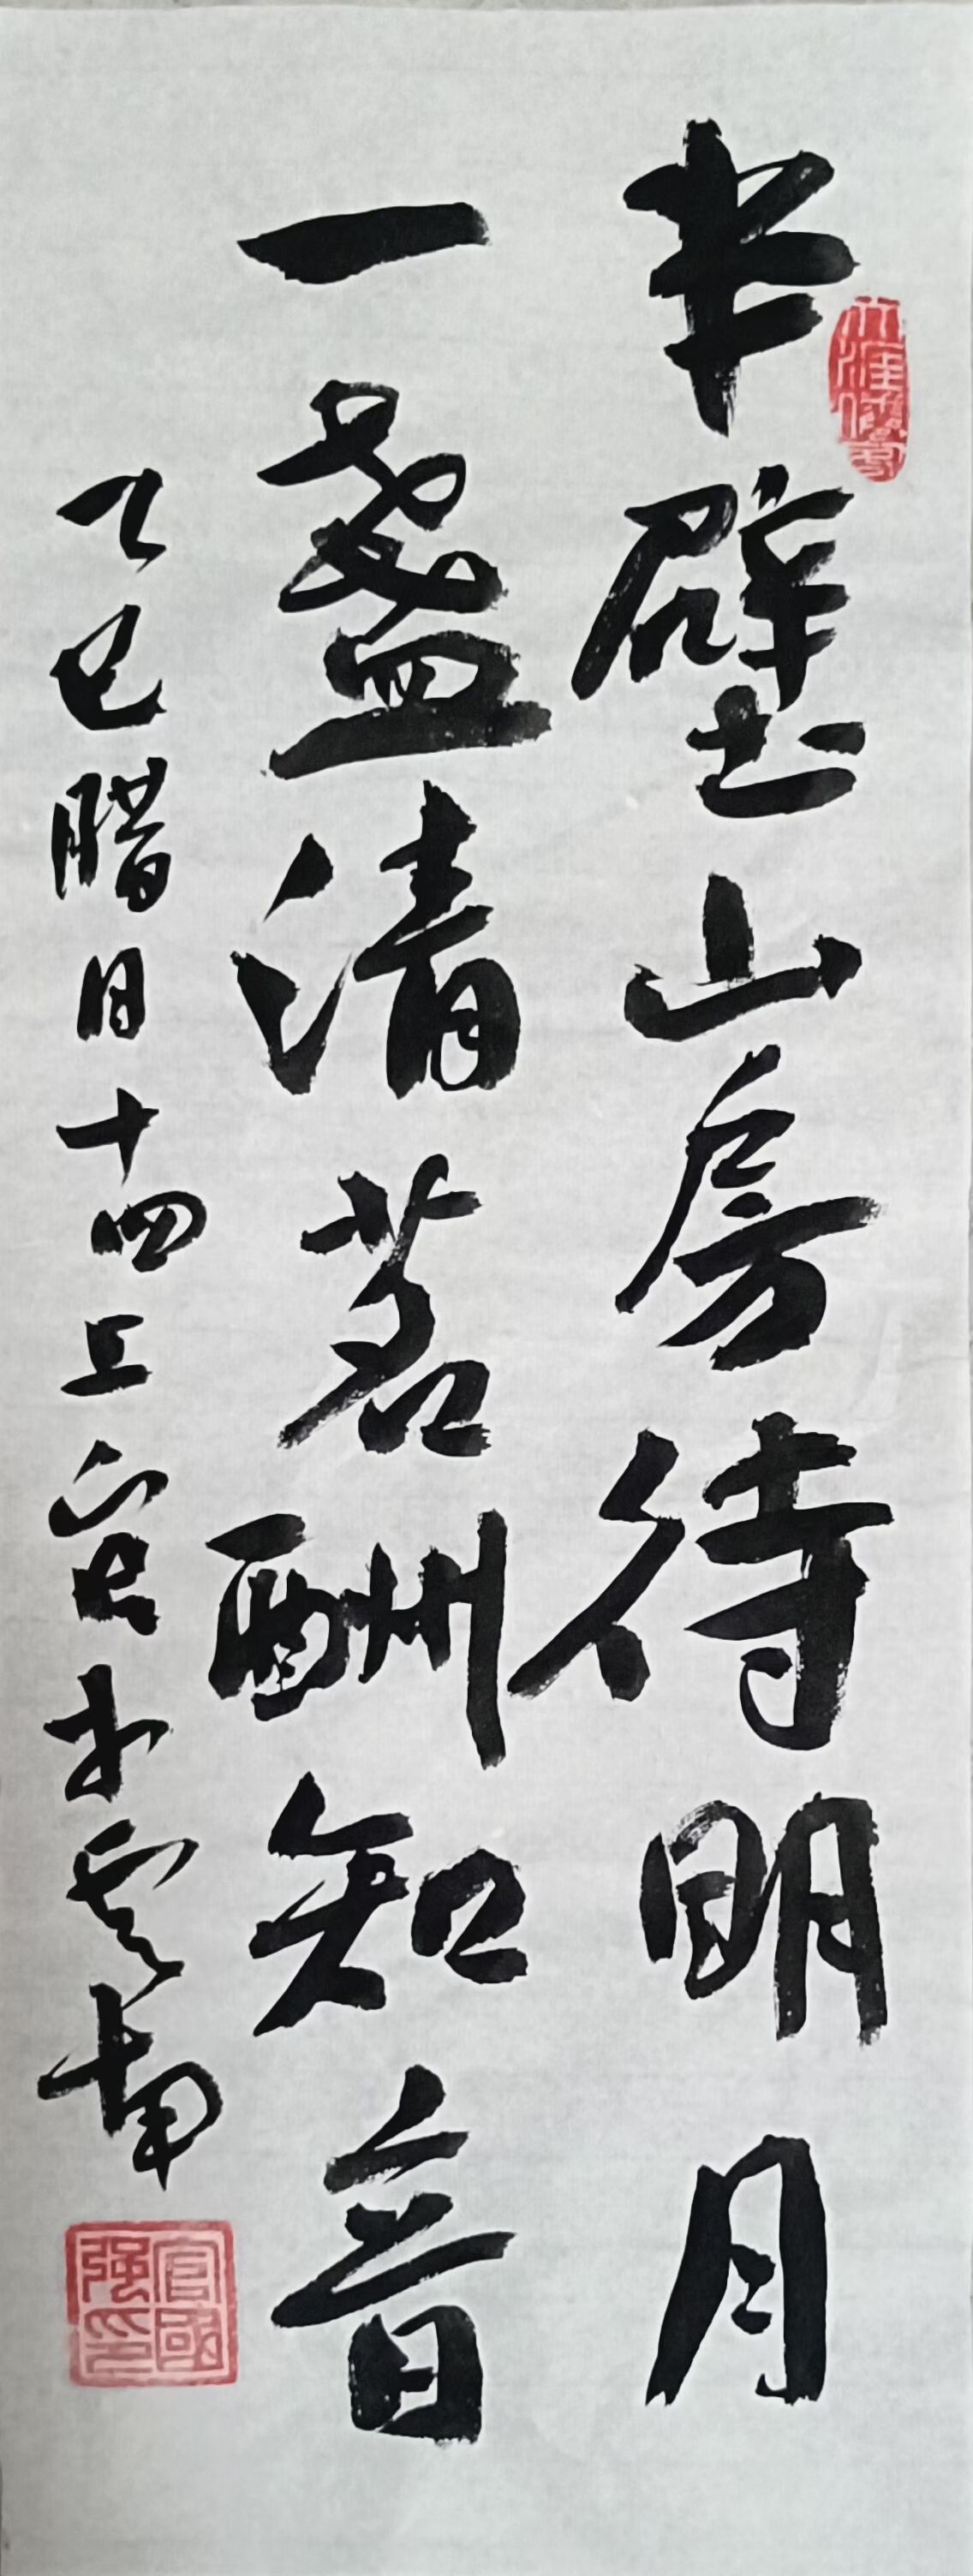 半壁山房待明月
一盏清茗酬知音
乙巳腊月十四上
官国强印